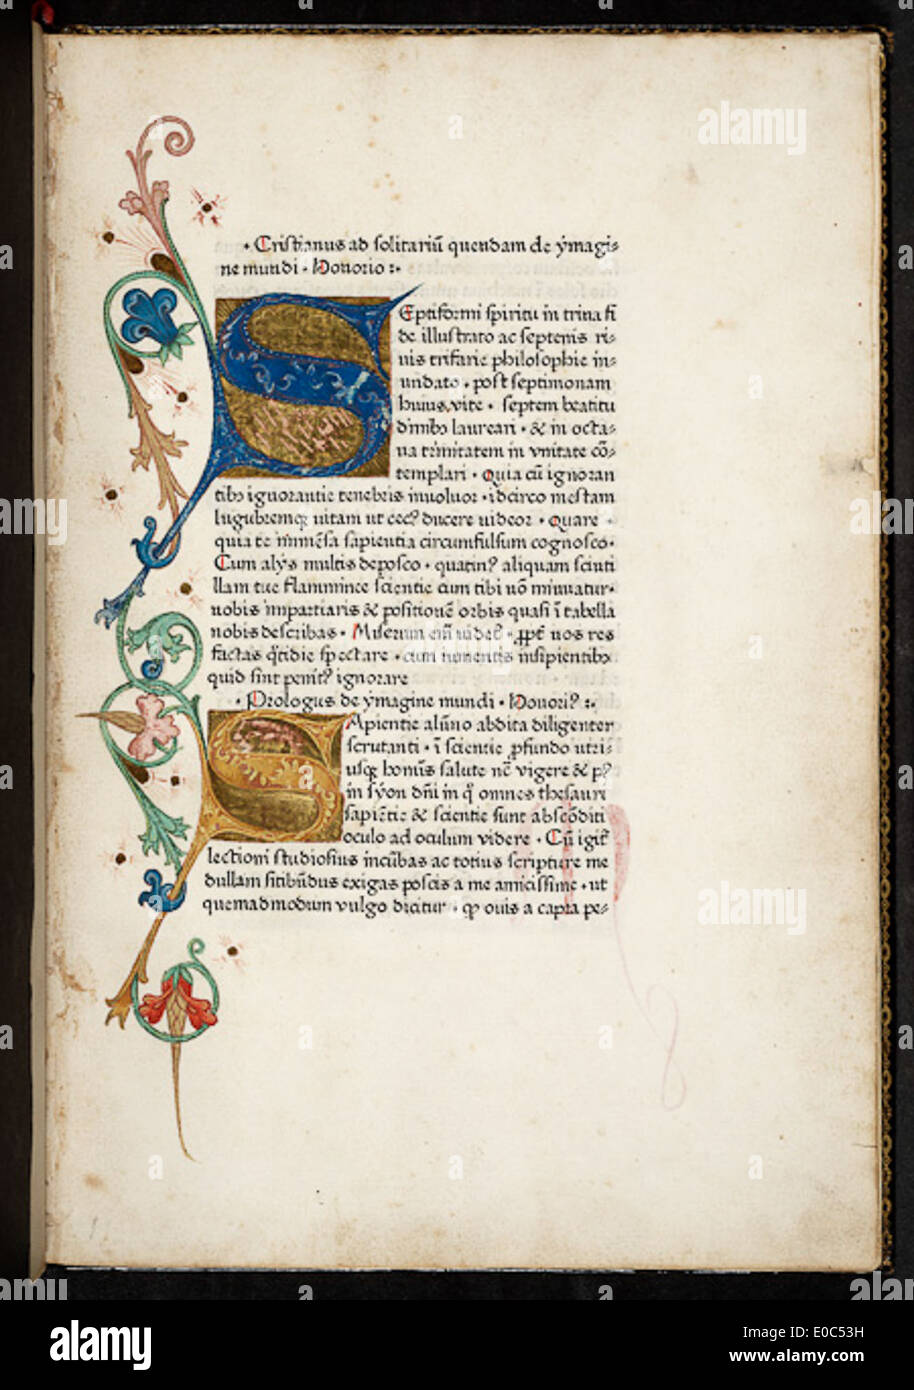 · Cristianus ad solitariū quendam de ymagi-
ne mundi · Honorio :·
SEptiformi spiritu in trina fi
de illustrato ac septenis ri-
uis trifarie philosophie in-
undato · post septimonam
huius vite · septem beatitu
dinibꝯ laureari · & in octa-
ua trinitatem in vnitate cō-
templari · Quia cū ignoran
tibꝯ ignorantie tenebris inuoluor · idcirco mestam
lugubremqꝫ uitam ut cecꝰ ducere uideor · Quare
quia te īmēsa sapientia circumfulsum cognosco·
Cum alijs multis deposco · quatinꝰ aliquam scinti
llam tue flammince scientie cum tibi nō minuatur·
nobis impartiaris & positionē orbis quasi ī tabella
nobis describas · Miserum eīm uidetꝛ · ꝓpt̄ nos res
factas q̄tidie spectare · cum iumentis insipientibꝯ
quid sint penitꝰ ignorare
· Prologus de ymagine mundi · Honoriꝰ :·
SApientie alūno abdita diligenter
scrutanti · ī scientie ꝓfundo utri-
usqꝫ homīs salute nē vigere & pꝰ
in syon dn̄i in q̄ omnes thesauri
sapiētie & scientie sunt abscōditi
oculo ad oculum videre · Cū igit̄
lectioni studiosius incūbas ac totius scripture me
dullam sitibūdus exigas poscis a me amicissime · ut
quemadmodum vulgo dicitur · qꝫ ouis a capra pe-
alamy
E0C53H
www.alamy.com